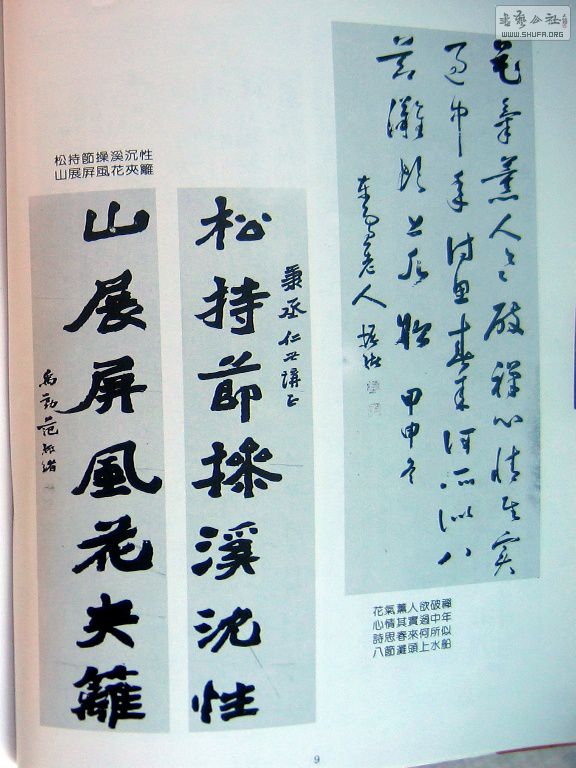 書藝公社
WWW.SHUFA.ORG
花氣薰人欲破禪心情其實
過中年詩思春來何所似八
節灘頭上水船 甲申冬
東雪老人 振緒
花氣薰人欲破禪
心情其實過中年
詩思春來何所似
八節灘頭上水船
松持節操溪沉性
山展屏風花夾籬
秉丞仁世講正
松持節操溪沈性
山展屏風花夾籬
禹勤范振緒
9